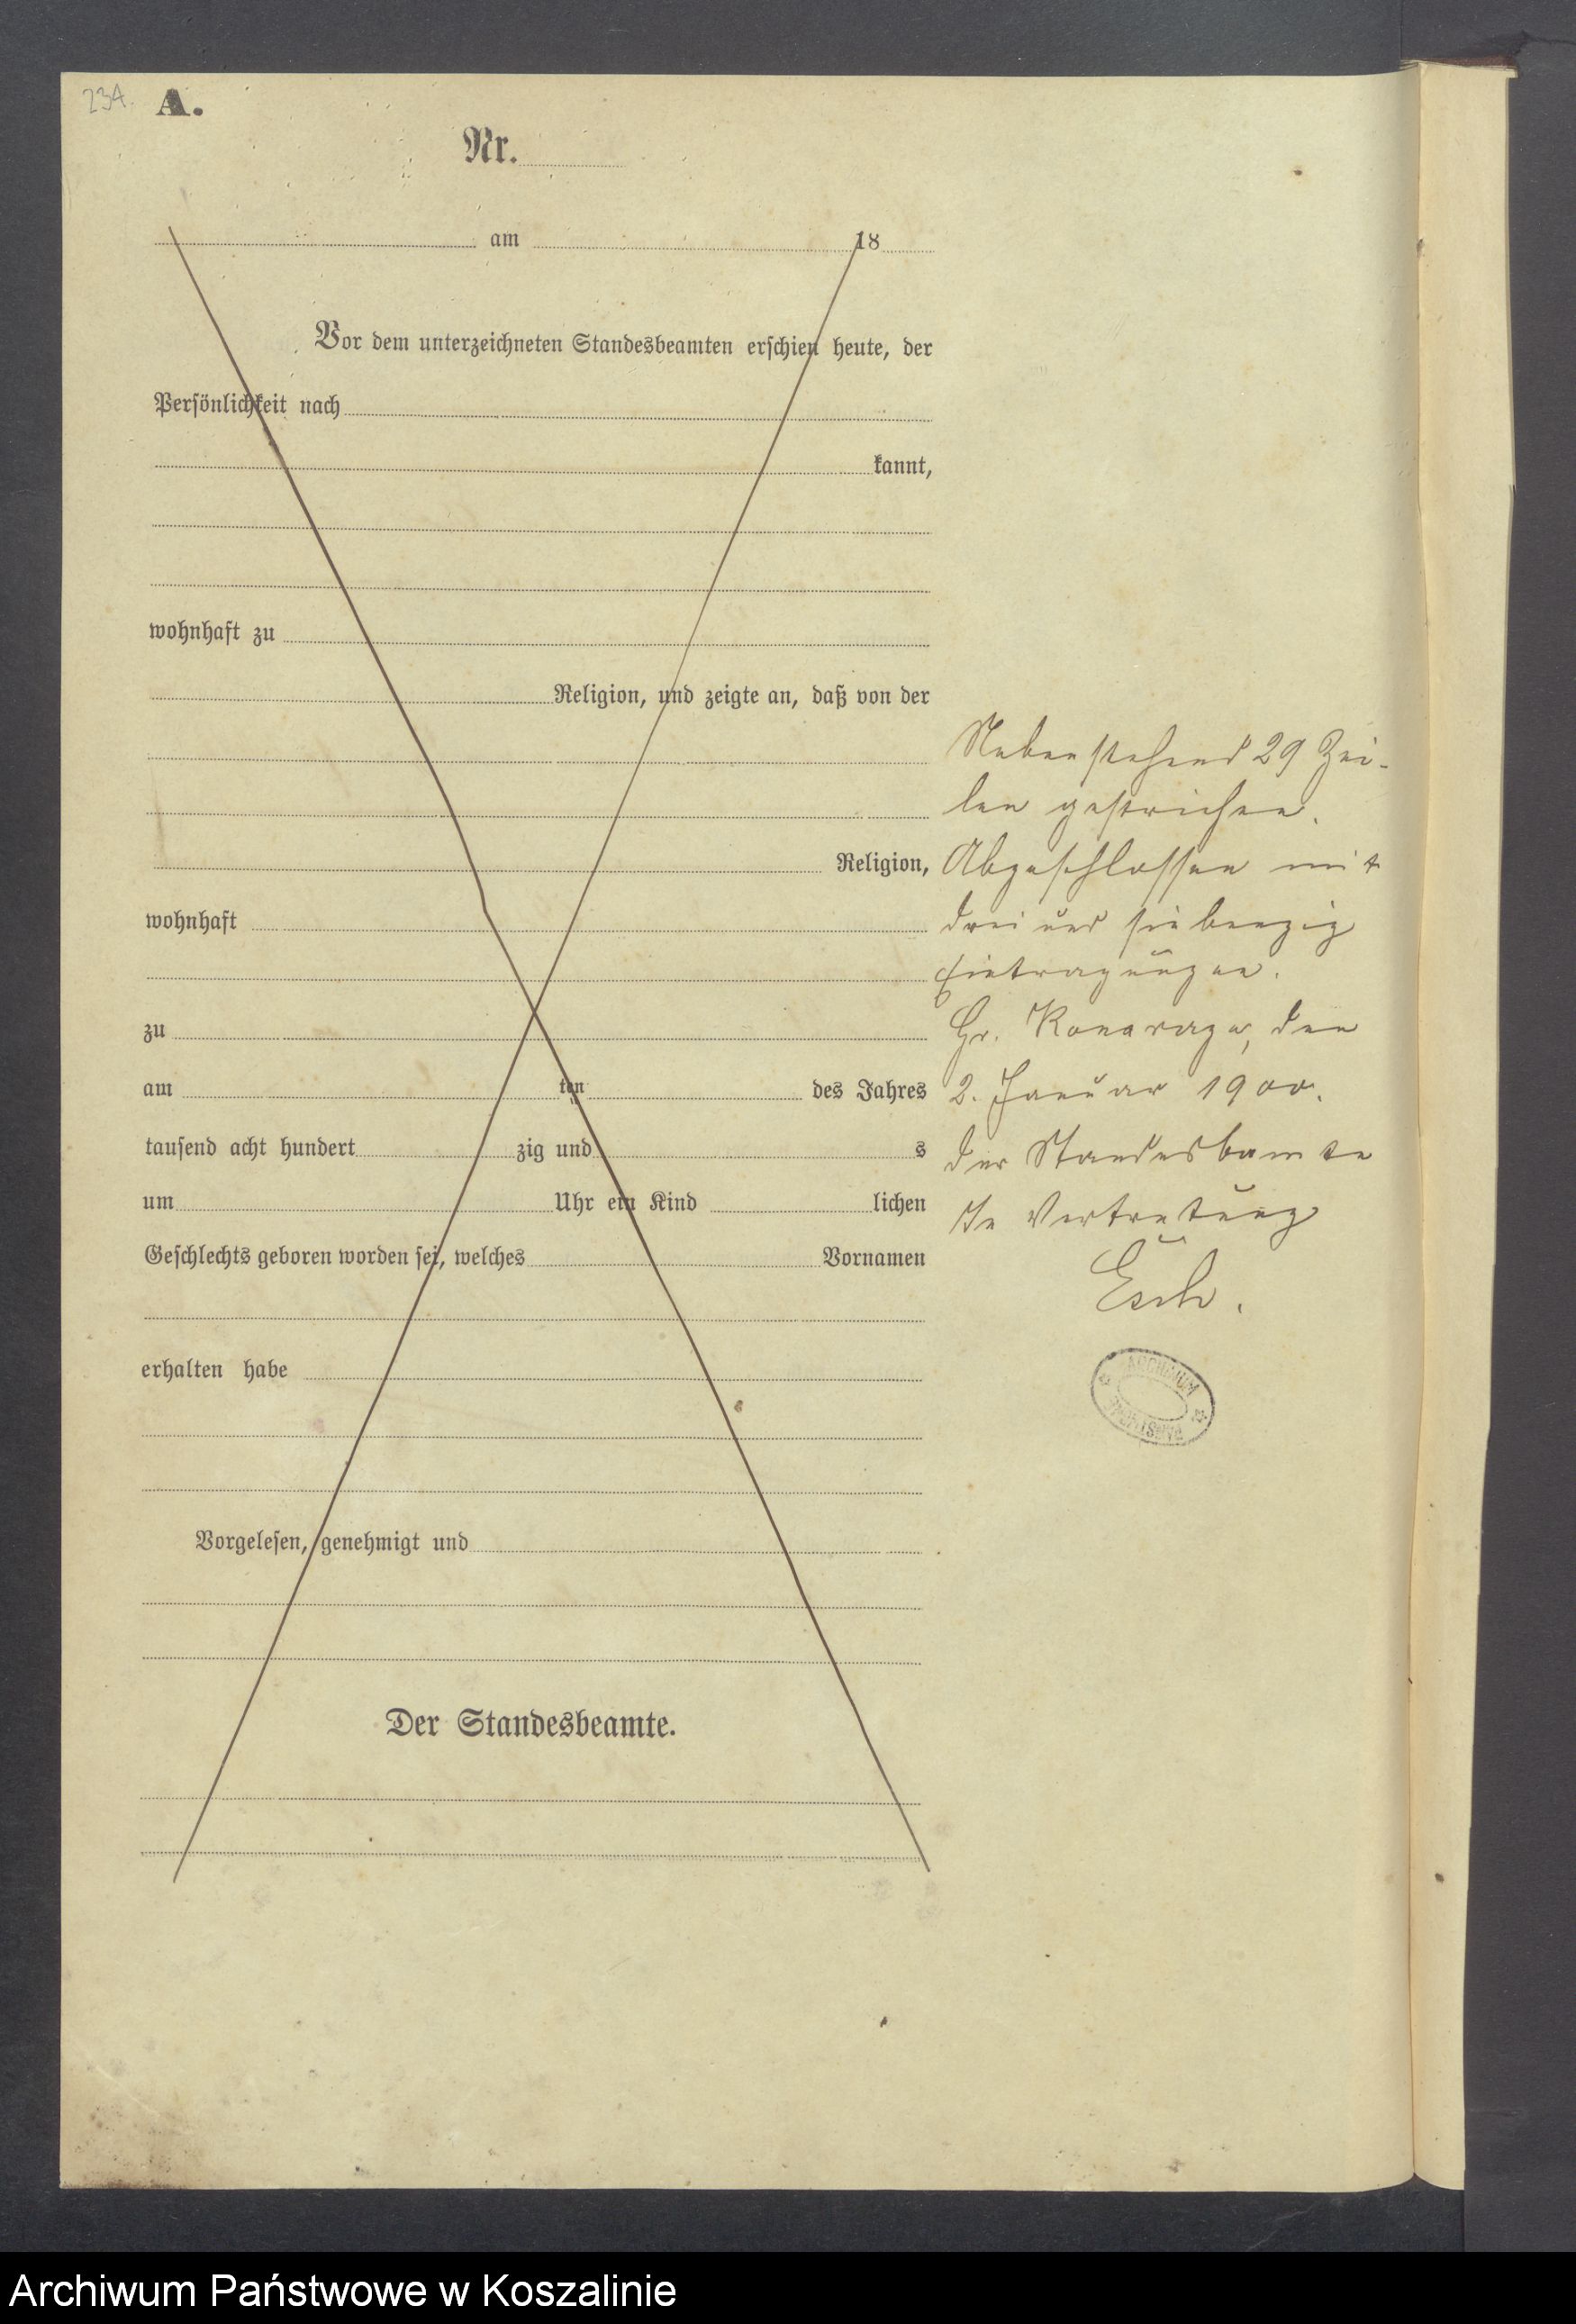 234.
A.
Nr.
am 18
Vor dem unterzeichneten Standesbeamten erschien heute, der
Persönlichkeit nach
kannt,
wohnhaft zu
Religion, und zeigte an, daß von der
Religion,
wohnhaft
zu
am ten des Jahres
tausend acht hundert zig und s
um Uhr ein Kind lichen
Geschlechts geboren worden sei, welches Vornamen
erhalten habe
Vorgelesen, genehmigt und
Der Standesbeamte.
Nebenstehend 29 Zei-
len gestrichen.
Abgeschlossen mit
drei und siebenzig
Eintragungen.
Gr. den
2. Januar 1900.
der Standesbamte
In Vertretung
Esch.
ARCHIWUM
PAŃSTWOWE
Archiwum Państwowe w Koszalinie